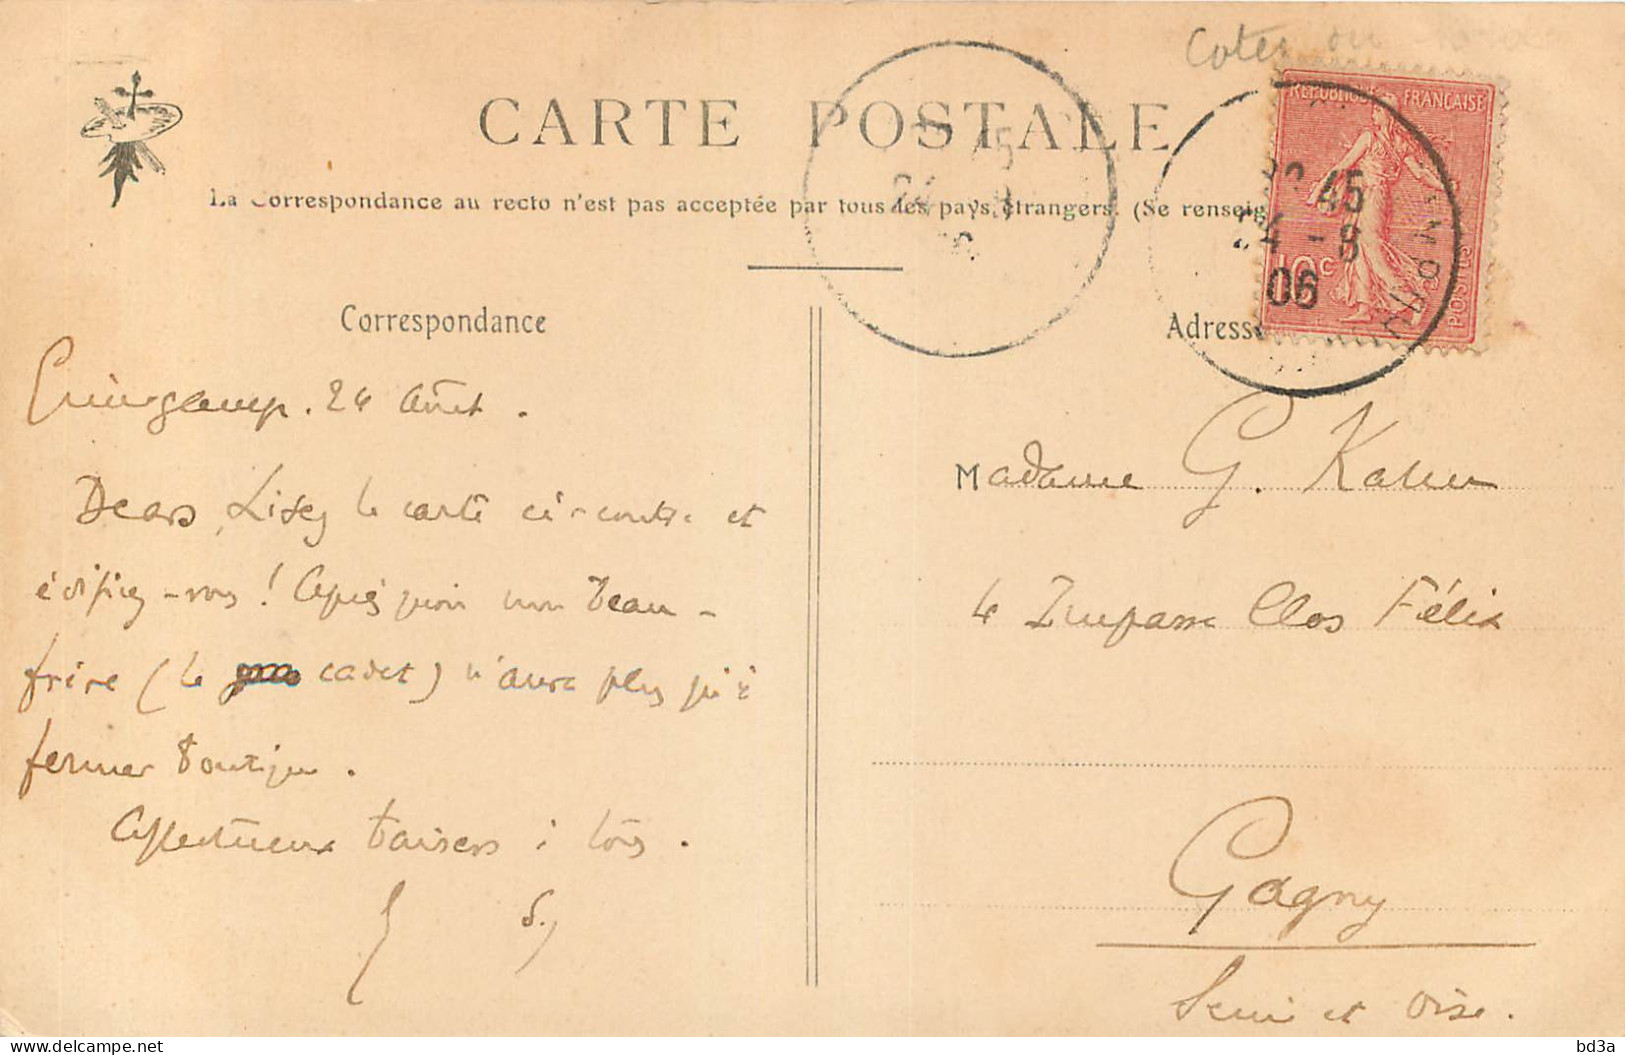 Cotes du Nord
CARTE POSTALE
La Correspondance au recto n'est pas acceptée par tous les pays étrangers. (Se renseig
REPUBLIQUE FRANÇAISE
10c
POSTES
45
24 - 8
06
Correspondance
Adress
Guingamp. 24 Août.
Dears, Lisez la carte ci-contre et
édifiez-vous ! Après quoi mon beau-
frère (le cadet) n'aura plus qu'à
fermer boutique.
Affectueux baisers à tous.
Madame G. Kahn
4 Impasse Clos Félix
Gagny
Seine et Oise.
bd3a